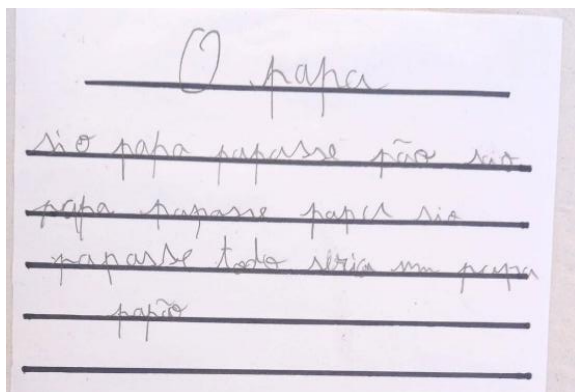 O papa
si o papa papasse pão sio
papa papasse papa sio
papasse todo seria um papa
papão